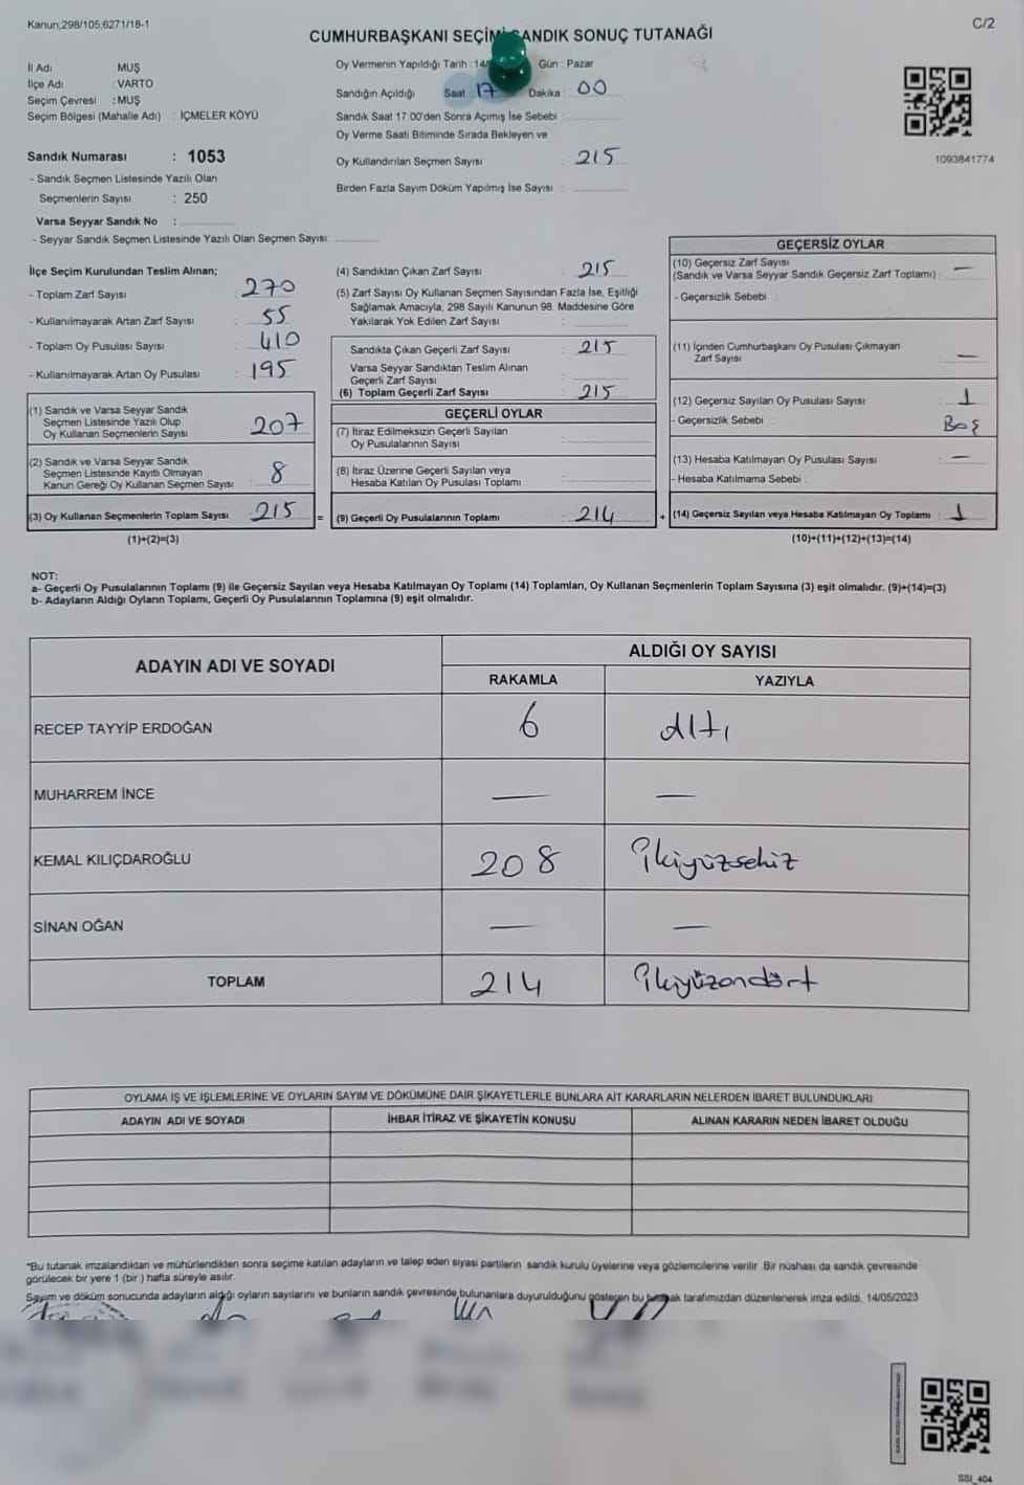 Kanun;298/105,6271/18-1
C/2
CUMHURBAŞKANI SEÇİMİ SANDIK SONUÇ TUTANAĞI
İl Adı MUŞ
İlçe Adı : VARTO
Seçim Çevresi : MUŞ
Seçim Bölgesi (Mahalle Adı) : İÇMELER KÖYÜ
Sandık Numarası : 1053
- Sandık Seçmen Listesinde Yazılı Olan
Seçmenlerin Sayısı : 250
Varsa Seyyar Sandık No :
- Seyyar Sandık Seçmen Listesinde Yazılı Olan Seçmen Sayısı:
Oy Vermenin Yapıldığı Tarih : 14/ Gün : Pazar
Sandığın Açıldığı Saat : 17 Dakika : 00
Sandık Saat 17:00'den Sonra Açımış İse Sebebi :
Oy Verme Saati Bitiminde Sırada Bekleyen ve
Oy Kullandırılan Seçmen Sayısı : 215
Birden Fazla Sayım Döküm Yapılmış İse Sayısı :
1093841774
İlçe Seçim Kurulundan Teslim Alınan;
- Toplam Zarf Sayısı : 270
- Kullanılmayarak Artan Zarf Sayısı : 55
- Toplam Oy Pusulası Sayısı : 410
- Kullanılmayarak Artan Oy Pusulası : 195
(1) Sandık ve Varsa Seyyar Sandık
Seçmen Listesinde Yazılı Olup
Oy Kullanan Seçmenlerin Sayısı 207
(2) Sandık ve Varsa Seyyar Sandık
Seçmen Listesinde Kayıtlı Olmayan
Kanun Gereği Oy Kullanan Seçmen Sayısı 8
(3) Oy Kullanan Seçmenlerin Toplam Sayısı 215 =
(1)+(2)=(3)
(4) Sandıktan Çıkan Zarf Sayısı : 215
(5) Zarf Sayısı Oy Kullanan Seçmen Sayısından Fazla İse, Eşitliği
Sağlamak Amacıyla, 298 Sayılı Kanunun 98. Maddesine Göre
Yakılarak Yok Edilen Zarf Sayısı :
Sandıkta Çıkan Geçerli Zarf Sayısı : 215
Varsa Seyyar Sandıktan Teslim Alınan
Geçerli Zarf Sayısı :
(6) Toplam Geçerli Zarf Sayısı : 215
GEÇERLİ OYLAR
(7) İtiraz Edilmeksizin Geçerli Sayılan
Oy Pusulalarının Sayısı :
(8) İtiraz Üzerine Geçerli Sayılan veya
Hesaba Katılan Oy Pusulası Toplamı :
(9) Geçerli Oy Pusulalarının Toplamı : 214 +
GEÇERSİZ OYLAR
(10) Geçersiz Zarf Sayısı
(Sandık ve Varsa Seyyar Sandık Geçersiz Zarf Toplamı) : —
- Geçersizlik Sebebi :
(11) İçinden Cumhurbaşkanı Oy Pusulası Çıkmayan
Zarf Sayısı : —
(12) Geçersiz Sayılan Oy Pusulası Sayısı : 1
- Geçersizlik Sebebi : Boş
(13) Hesaba Katılmayan Oy Pusulası Sayısı : —
- Hesaba Katılmama Sebebi :
(14) Geçersiz Sayılan veya Hesaba Katılmayan Oy Toplamı : 1
(10)+(11)+(12)+(13)=(14)
NOT:
a- Geçerli Oy Pusulalarının Toplamı (9) ile Geçersiz Sayılan veya Hesaba Katılmayan Oy Toplamı (14) Toplamları, Oy Kullanan Seçmenlerin Toplam Sayısına (3) eşit olmalıdır. (9)+(14)=(3)
b- Adayların Aldığı Oyların Toplamı, Geçerli Oy Pusulalarının Toplamına (9) eşit olmalıdır.
ADAYIN ADI VE SOYADI
ALDIĞI OY SAYISI
RAKAMLA YAZIYLA
RECEP TAYYİP ERDOĞAN 6 Altı
MUHARREM İNCE — —
KEMAL KILIÇDAROĞLU 208 ikiyüzsekiz
SİNAN OĞAN — —
TOPLAM 214 ikiyüzondört
OYLAMA İŞ VE İŞLEMLERİNE VE OYLARIN SAYIM VE DÖKÜMÜNE DAİR ŞİKAYETLERLE BUNLARA AİT KARARLARIN NELERDEN İBARET BULUNDUKLARI
ADAYIN ADI VE SOYADI İHBAR İTİRAZ VE ŞİKAYETİN KONUSU ALINAN KARARIN NEDEN İBARET OLDUĞU
*Bu tutanak imzalandıktan ve mühürlendikten sonra seçime katılan adayların ve talep eden siyasi partilerin sandık kurulu üyelerine veya gözlemcilerine verilir. Bir nüshası da sandık çevresinde
görülecek bir yere 1 (bir ) hafta süreyle asılır.
Sayım ve döküm sonucunda adayların aldığı oyların sayılarını ve bunların sandık çevresinde bulunanlara duyurulduğunu gösteren bu tutanak tarafımızdan düzenlenerek imza edildi. 14/05/2023
SSI_404